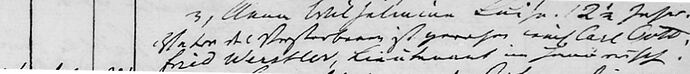 3, Anna Wilhelmina Luise. 12½ Jahr.
Vater des Verstorbenen ist gewesen Carl Gott-
fried Werstler, Lieutenant in